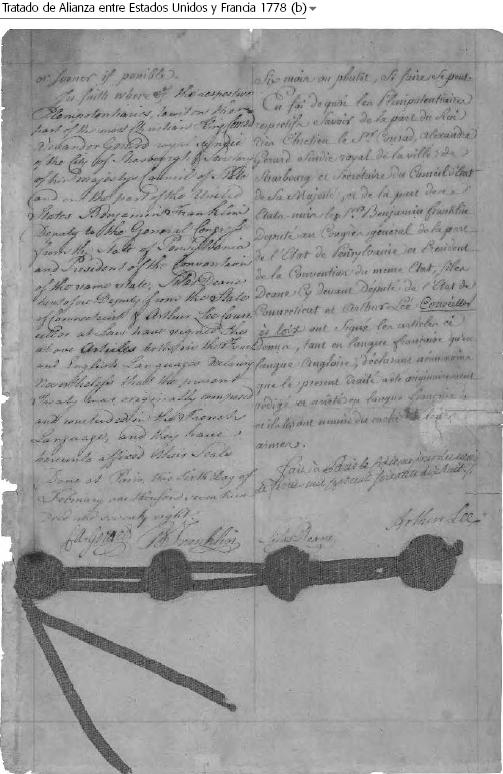 Tratado de Alianza entre Estados Unidos y Francia 1778 (b)
or sooner if possible.
In faith where of the respective
Plenipotentiaries, to wit on the
part of the most Christian King Conrad
Alexander Gerard royal syndic
of the City of Strasbourg & Secretary
of his majestys Council of State
and on the part of the United
States Benjamin Franklin
Deputy to the General Congress
from the State of Pensylvania
and President of the Convention
of the same state, Silas Deane
heretofore Deputy from the State
of Connecticut & Arthur Lee
at Law have signed the
above Articles both in the French
and English Languages declaring
Nevertheless that the present
Treaty was originally composed
and concluded in the French
Language, and they have
hereunto affixed their Seals
Done at Paris, this sixth Day of
February, one thousand seven hun
dred and seventy eight.
Six mois ou plutôt, si faire se peut.
En foi de quoi les Plenipotentiaires
respectifs, savoir de la part du Roi
Très Chretien le Sr. Conrad, Alexandre
Gerard Sindic royal de la ville de
Strasbourg et Secretaire du Conseil d'Etat
de Sa Majesté, et de la part des
Etats-unis les Srs. Benjamin Franklin
Deputé au Congrès general de la part
de l'Etat de Pensylvanie et President
de la Convention du meme Etat, Silas
Deane Cy devant Deputé de l'Etat de
Connecticut et Arthur Lee Conseiller
ès loix ont signé les articles ci
dessus, tant en langue françoise qu'en
langue Angloise, déclarant néanmoins
que le present traité a été originairement
redigé et arreté en langue françoise,
et ils les ont munis du cachet de leurs
armes.
Fait à Paris le sixieme jour du mois
de fevrier mil sept cent soixante dix huit.
B Franklin
Silas Deane
Arthur Lee